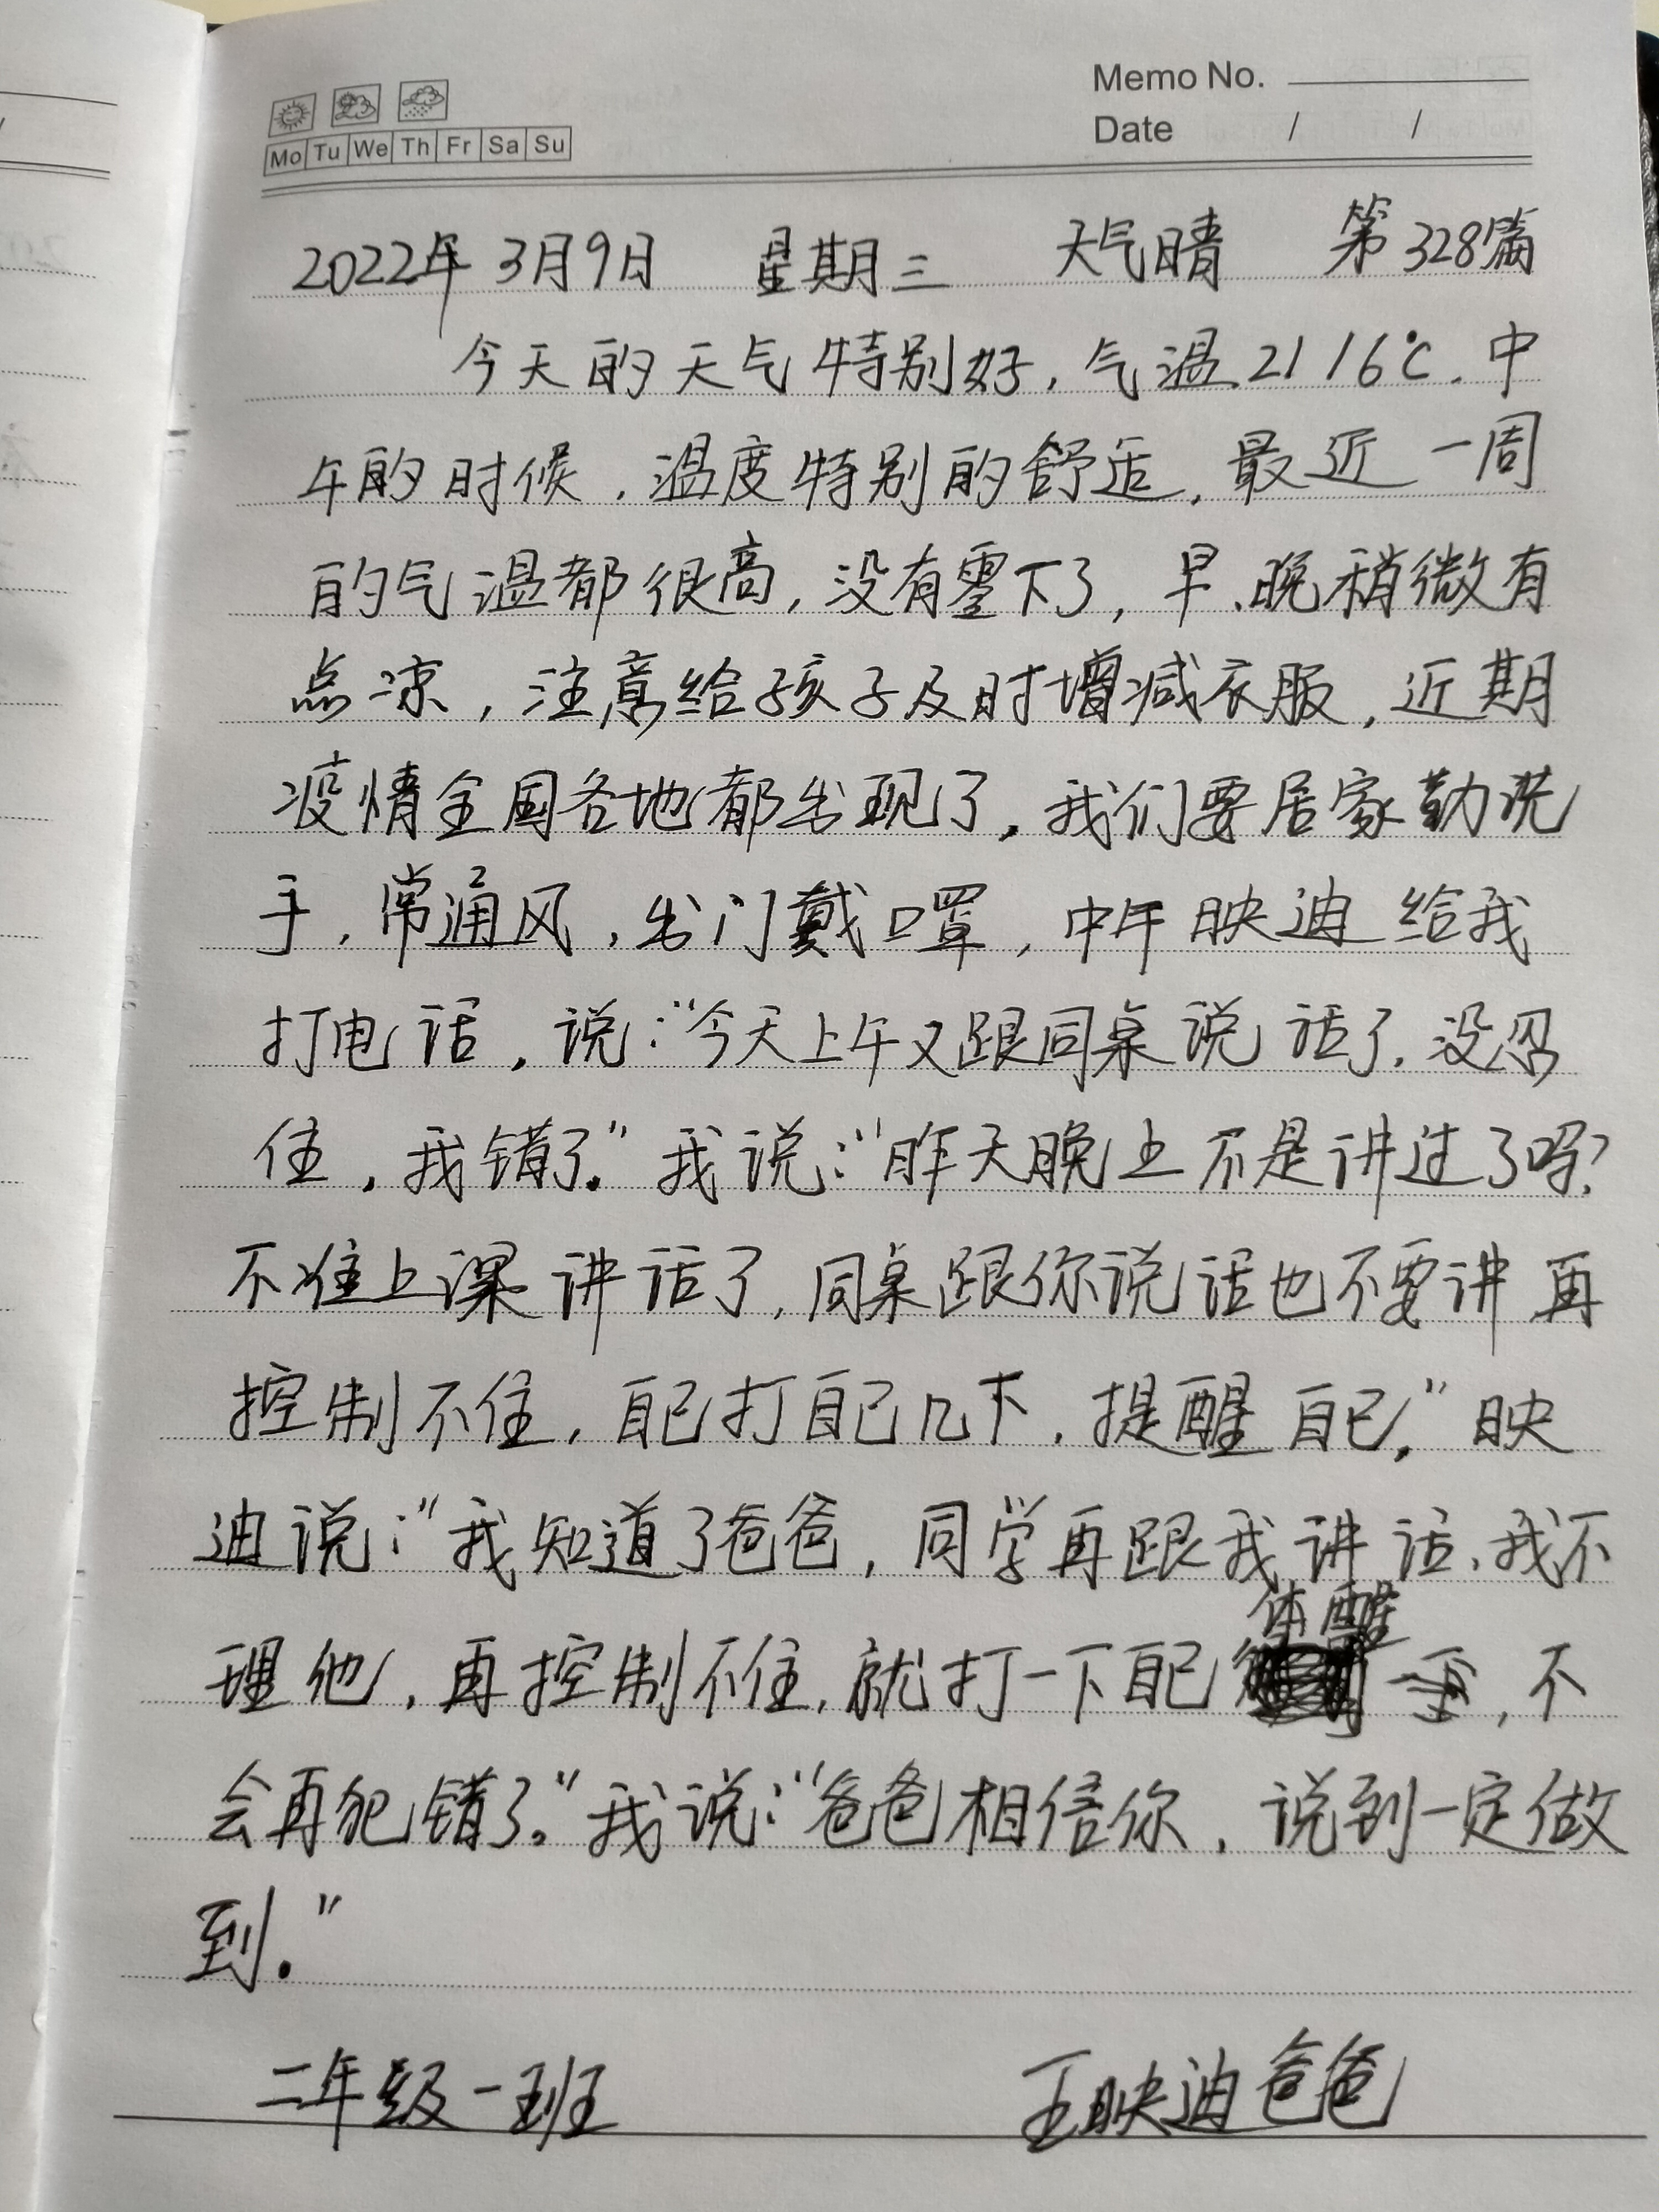 Memo No.
Mo Tu We Th Fr Sa Su
Date / /
2022年 3月9日 星期三 天气晴 第328篇
今天的天气特别好,气温21/6℃.中
午的时候,温度特别的舒适,最近一周
的气温都很高,没有零下了,早、晚稍微有
点凉,注意给孩子及时增减衣服,近期
疫情全国各地都出现了,我们要居家勤洗
手,常通风,出门戴口罩,中午映迪给我
打电话,说:“今天上午又跟同桌说话了,没忍
住,我错了。”我说:“昨天晚上不是讲过了吗?
不准上课讲话了,同桌跟你说话也不要讲再
控制不住,自己打自己几下,提醒自己。”映
迪说:“我知道了爸爸,同学再跟我讲话、我不
理他,再控制不住,就打一下自己 醒一下,不
会再犯错了。”我说:“爸爸相信你,说到一定做
到。”
二年级一班 王映迪爸爸